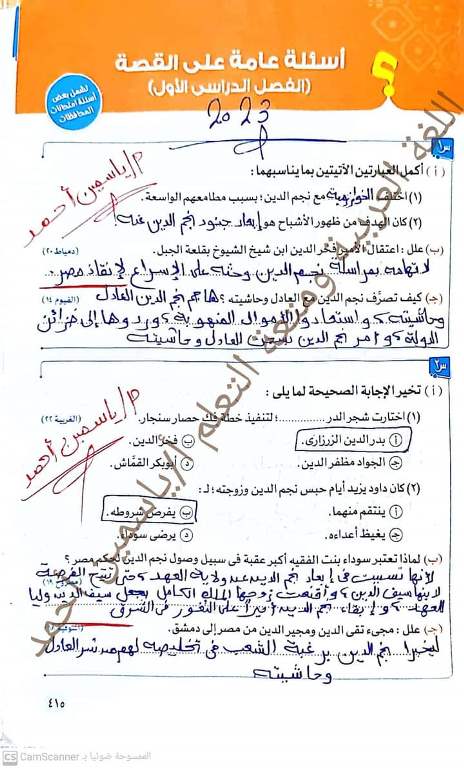 أسئلة عامة على القصة
(الفصل الدراسى الأول)
تشمل بعض
أسئلة امتحانات
المحافظات
2023
س١
م/ ياسمين أحمد
(أ) أكمل العبارتين الآتيتين بما يناسبهما:
(١) اختلف الخوارزمية مع نجم الدين؛ بسبب مطامعهم الواسعة.
(٢) كان الهدف من ظهور الأشباح هو إبعاد جنود نجم الدين عنه!
(ب) علل: اعتقال الأمير فخر الدين ابن شيخ الشيوخ بقلعة الجبل.
(دمياط ٢٠)
لاتهامه بمراسلة نجم الدين وحثه على الإسراع لإنقاذ مصر
(جـ) كيف تصرَّف نجم الدين مع العادل وحاشيته؟ هاجم نجم الدين العادل
(الفيوم ١٤)
وحاشيته، واستعادوا الأموال المنهوبة، وردوها إلى خزائن
الدولة، وأمر نجم الدين بسجن العادل وحاشيته
س٢
(أ) تخير الإجابة الصحيحة لما يلى:
(١) اختارت شجر الدر ............ لتنفيذ خطة فك حصار سنجار.
(الغربية ٢٢)
أ بدر الدين الزرزارى.
ب فخر الدين.
جـ الجواد مظفر الدين.
د أبو بكر القمَّاش.
م/ ياسمين أحمد
(٢) كان داود يزيد أيام حبس نجم الدين وزوجته؛ لـ:
أ ينتقم منهما.
ب يفرض شروطه.
جـ يغيظ أعداءه.
د يرضى سوداء.
(ب) لماذا تعتبر سوداء بنت الفقيه أكبر عقبة فى سبيل وصول نجم الدين لحكم مصر؟
لأنها تسببت فى إبعاد نجم الدين عن ولاية العهد، حتى تتيح الفرصة
لابنها سيف الدين، وأقنعت زوجها الملك الكامل بجعل سيف الدين وليا
للعهد، وإبقاء نجم الدين أميرا على الثغور فى الشرق
(جـ) علل: مجىء تقى الدين ومجير الدين من مصر إلى دمشق.
ليخبرا نجم الدين برغبة الشعب فى تخليصه لهم من شر العادل
وحاشيته
٤١٥
اللغة العربية ومتعة التعلم أ/ ياسمين أحمد
CS CamScanner الممسوحة ضوئيا بـ